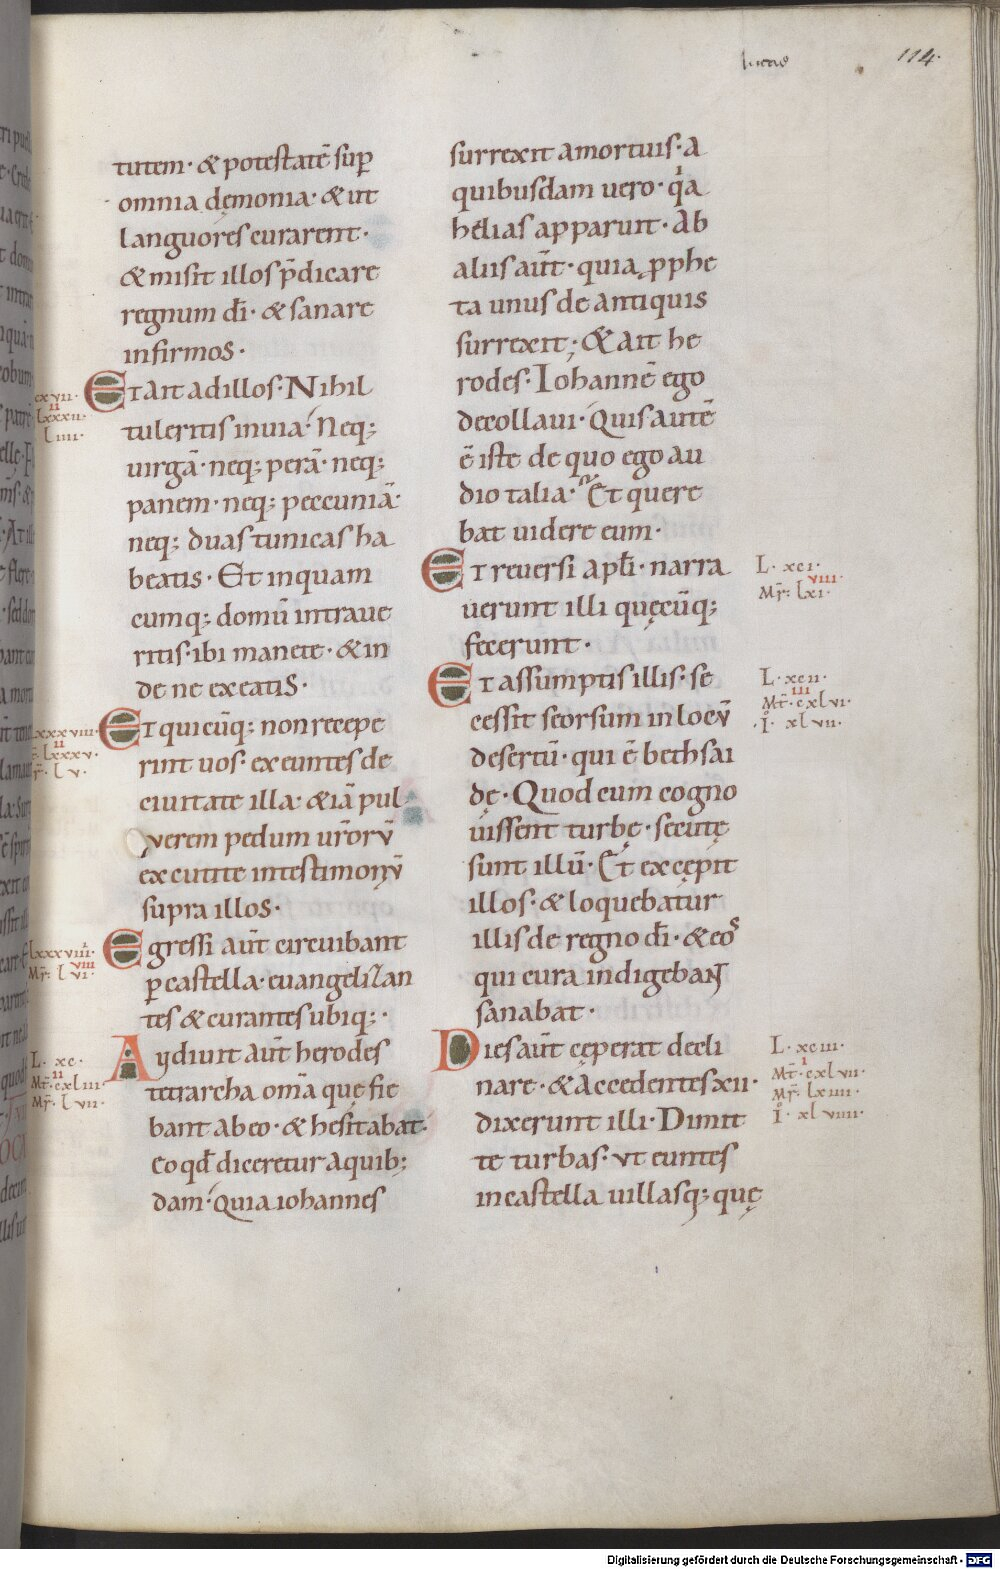 lucas
114
tutem· & potestatē sup̄
omnia dęmonia· & ut
languores curarent·
& misit illos p̄dicare
regnum dī· & sanare
infirmos·
Et ait ad illos· Nihil
tuleritis in uia· Neq;
uirgā· neq; perā· neq;
panem· neq; peccuniā·
neq; duas tunicas ha
beatis· Et in quam
cumq; domū intraue
ritis· ibi manete· & in
de ne exeatis·
Et quicūq; non recepe
rint uos· exeuntes de
ciuitate illa· & iā pul
verem pedum ur̄orū
excutite in testimoniū
supra illos·
Egressi aūt circuibant
p castella· euangelizan
tes & curantes ubiq;·
Audiuit aūt herodes
tetrarcha om̄a quę fie
bant ab eo· & hesitabat·
Eo qđ diceretur a quib;
dam· Quia iohannes
surrexit a mortuis· a
quibusdam uero· q̇a
helias apparuit· Ab
aliis aūt· quia ꝓphe
ta unus de antiquis
surrexit; & ait he
rodes· Iohannē ego
decollaui· Quis autē
ē iste de quo ego au
dio talia· Et quere
bat uidere eum·
Et reuersi apłi· narra
uerunt illi quęcūq;
fecerunt·
Et assumptis illis· se
cessit seorsum in locū
desertū· qui ē bethsai
dę· Quod cum cogno
uissent turbę· secutę
sunt illū· Et excępit
illos· & loquebatur
illis de regno dī· & eos
qui cura indigebant
sanabat·
Dies aūt cęperat decli
nare· & Accedentes xii·
dixerunt illi· Dimit
te turbas· ut euntes
in castella uillasq; quę
lxxxii·
liii·
lxxxviii·
L· xc·
ii
Mt̄· cxliii·
Mr̄· lvii·
L· xci·
viii
Mr̄· lxi·
L· xcii·
iii
Mt̄· cxlvi·
I· xlvii·
L· xciii·
i
Mt̄· cxlvii·
Mr̄· lxiiii·
I· xlviiii·
Digitalisierung gefördert durch die Deutsche Forschungsgemeinschaft - DFG